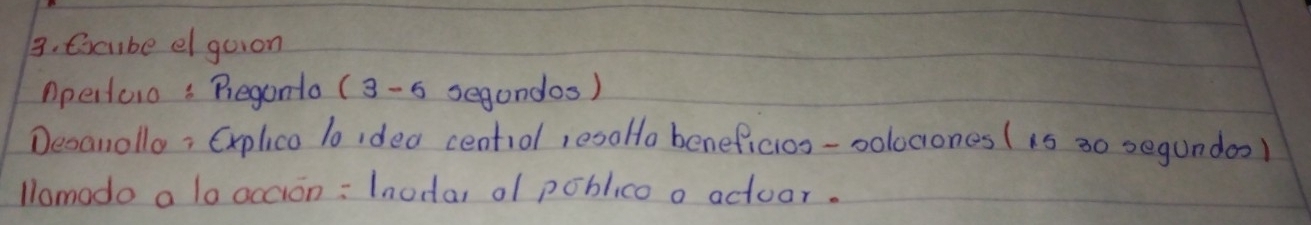 3. Escribe el guion
Apertura : Pregunta (3-5 segundos)
Desarrollo : Explica la idea central resalta beneficios - soluciones (15 30 segundos)
llamado a la acción : Invitar al público a actuar.